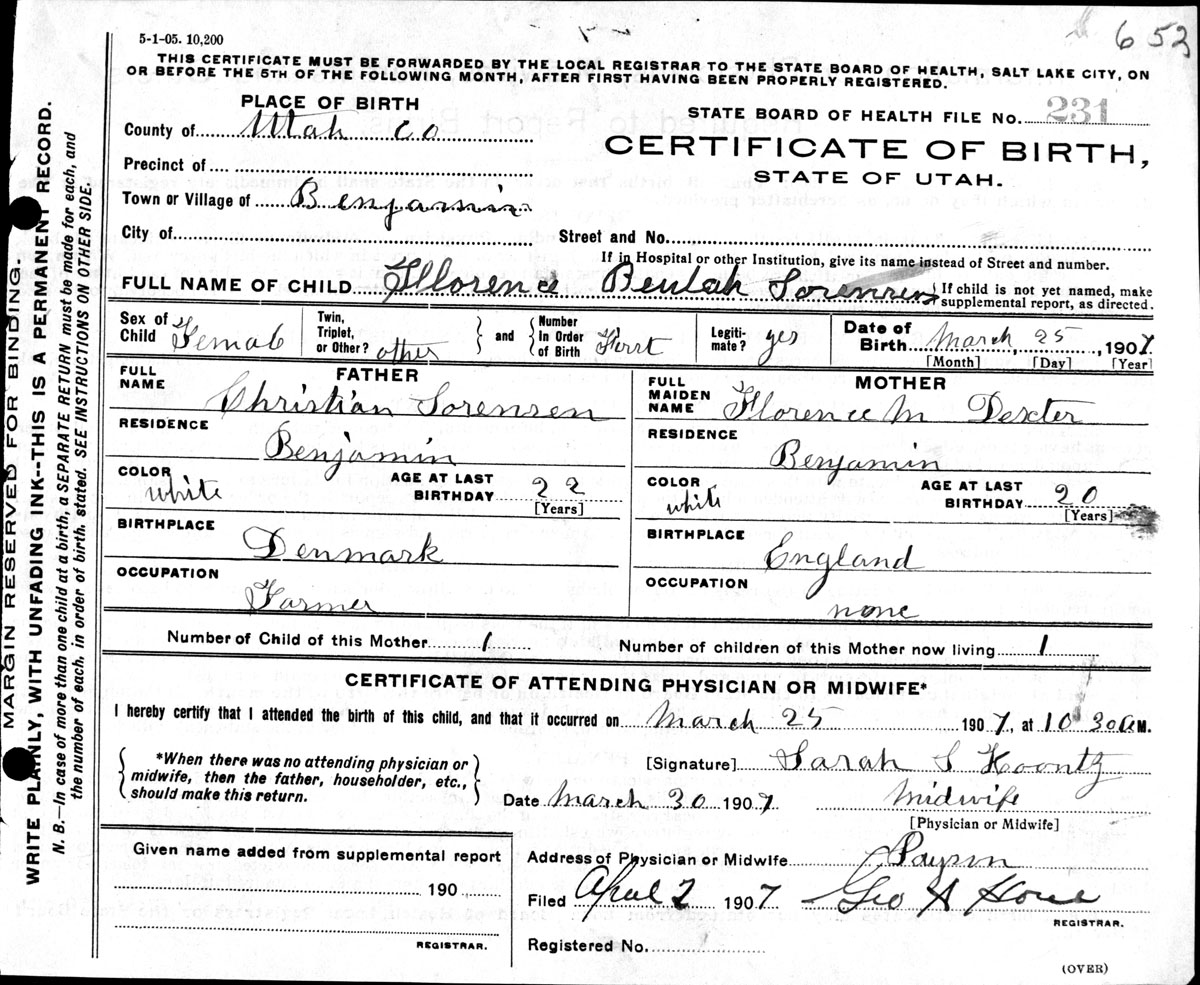 5-1-05. 10,200
653
THIS CERTIFICATE MUST BE FORWARDED BY THE LOCAL REGISTRAR TO THE STATE BOARD OF HEALTH, SALT LAKE CITY, ON
OR BEFORE THE 5TH OF THE FOLLOWING MONTH, AFTER FIRST HAVING BEEN PROPERLY REGISTERED.
PLACE OF BIRTH
STATE BOARD OF HEALTH FILE NO. 231
County of Utah Co
CERTIFICATE OF BIRTH,
STATE OF UTAH.
Precinct of
Town or Village of Benjamin
City of
Street and No.
If in Hospital or other Institution, give its name instead of Street and number.
FULL NAME OF CHILD Florence Beulah Sorensen } If child is not yet named, make
supplemental report, as directed.
Sex of
Child Female
Twin,
Triplet,
or Other? other
and
Number
In Order
of Birth First
Legiti-
mate? yes
Date of
Birth March 25, 1907
[Month] [Day] [Year]
FATHER
FULL
NAME Christian Sorensen
RESIDENCE
Benjamin
COLOR
white
AGE AT LAST
BIRTHDAY 22
[Years]
BIRTHPLACE
Denmark
OCCUPATION
Farmer
MOTHER
FULL
MAIDEN
NAME Florence M Dexter
RESIDENCE
Benjamin
COLOR
white
AGE AT LAST
BIRTHDAY 20
[Years]
BIRTHPLACE
England
OCCUPATION
none
Number of Child of this Mother 1 Number of children of this Mother now living 1
CERTIFICATE OF ATTENDING PHYSICIAN OR MIDWIFE*
I hereby certify that I attended the birth of this child, and that it occurred on March 25 1907, at 10 30 a M.
*When there was no attending physician or
midwife, then the father, householder, etc.,
should make this return.
[Signature] Sarah S Koontz
Date March 30 1907 Midwife
[Physician or Midwife]
Given name added from supplemental report
190
REGISTRAR.
Address of Physician or Midwife Payson
Filed April 2 1907 Geo A Hone
REGISTRAR.
Registered No.
(OVER)
MARGIN RESERVED FOR BINDING
WRITE PLAINLY, WITH UNFADING INK--THIS IS A PERMANENT RECORD.
N. B.—In case of more than one child at a birth, a SEPARATE RETURN must be made for each, and
the number of each, in order of birth, stated. SEE INSTRUCTIONS ON OTHER SIDE.